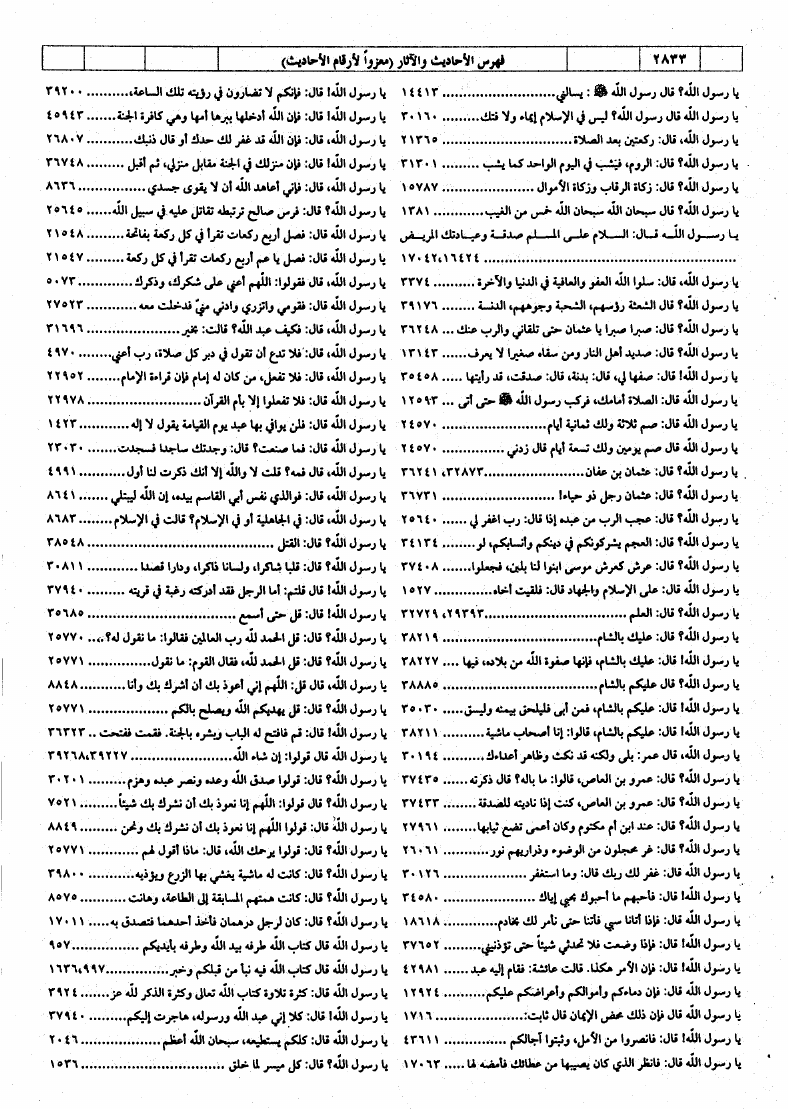 ٢٨٣٣
فهرس الأحاديث والآثار (معزواً لأرقام الأحاديث)
يا رسول الله؟ قال رسول الله ﷺ : يسالني .......... ١٤٤١٣
يا رسول الله قال رسول الله؟ ليس في الإسلام إيماء ولا فتك .......... ٣٠١٦٠
يا رسول الله، قال: ركعتين بعد الصلاة .......... ٢١٣٦٥
يا رسول الله؟ قال: الروم، فيشب في اليوم الواحد كما يشب .......... ٣١٣٠١
يا رسول الله؟ قال: زكاة الرقاب وزكاة الأموال .......... ١٥٧٨٧
يا رسول الله؟ قال سبحان الله سبحان الله خمس من الغيب .......... ١٣٨١
يا رسول الله قال: السلام على المسلم صدقة وعيادتك المريض
.......... ١٦٤٢٤، ١٧٠٤٢
يا رسول الله، قال: سلوا الله العفو والعافية في الدنيا والآخرة .......... ٣٣٧٤
يا رسول الله؟ قال الشعثة رؤسهم، الشحبة وجوههم، الدنسة .......... ٣٩١٧٦
يا رسول الله؟ قال: صبرا صبرا يا عثمان حتى تلقاني والرب عنك ... ٣٦٢٤٨
يا رسول الله؟ قال: صديد أهل النار ومن سقاه صغيرا لا يعرف ...... ١٣١٤٣
يا رسول الله! قال: صفها لي، قال: بدنة، قال: صدقت، قد رأيتها ..... ٣٥٤٥٨
يا رسول الله، قال: الصلاة أمامك، فركب رسول الله ﷺ حتى أتى ... ١٢٥٩٣
يا رسول الله قال: صم ثلاثة ولك ثمانية أيام .......... ٢٤٥٧٠
يا رسول الله قال صم يومين ولك تسعة أيام قال زدني .......... ٢٤٥٧٠
يا رسول الله؟ قال: عثمان بن عفان .......... ٣٢٨٧٣، ٣٦٢٤١
يا رسول الله؟ قال: عثمان رجل ذو حياء! .......... ٣٦٧٣١
يا رسول الله؟ قال: عجب الرب من عبده إذا قال: رب اغفر لي ...... ٢٥٦٤٠
يا رسول الله؟ قال: العجم يشركونكم في دينكم وأنسابكم، لو ........ ٣٤١٣٤
يا رسول الله؟ قال: عرش كعرش موسى ابنوا لنا بلبن، فجعلوا...... ٣٧٤٠٨
يا رسول الله؟ قال: على الإسلام والجهاد قال: فلقيت أخاه .......... ١٥٢٧
يا رسول الله؟ قال: العلم .......... ٢٩٣٩٣، ٣٢٧٢٩
يا رسول الله؟ قال: عليك بالشام .......... ٣٨٢١٩
يا رسول الله! قال: عليك بالشام، فإنها صفوة الله من بلاده، فيها .... ٣٨٢٢٧
يا رسول الله؟ قال عليكم بالشام .......... ٣٨٨٨٥
يا رسول الله! قال: عليكم بالشام، فمن أبى فليلحق بيمنه وليسق..... ٣٥٠٣٠
يا رسول الله! قال: عليكم بالشام، قالوا: إنا أصحاب ماشية .......... ٣٨٢١١
يا رسول الله، قال عمر: بلى ولكنه قد نكث وظاهر أعداءك .......... ٣٠١٩٤
يا رسول الله؟ قال: عمرو بن العاص، قالوا: ما باله؟ قال ذكرته ...... ٣٧٤٣٥
يا رسول الله؟ قال: عمرو بن العاص، كنت إذا ناديته للصدقة ........ ٣٧٤٣٣
يا رسول الله؟ قال: عند ابن أم مكتوم وكان أعمى تضع ثيابها........ ٢٧٩٦١
يا رسول الله؟ قال: غر محجلون من الوضوء وذراريهم نور .......... ٢٦٠٦١
يا رسول الله قال: غفر لك ربك قال: وما استغفر .......... ٣٠١٢٦
يا رسول الله! قال: فأحبهم ما أحبوك بحبي إياك .......... ٣٤٥٨٠
يا رسول الله قال: فإذا أتانا سبي فأتنا حتى نأمر لك بخادم .......... ١٨٦١٨
يا رسول الله! قال: فإذا وضعت فلا تحدثي شيئاً حتى تؤذنيني ....... ٣٧٦٥٢
يا رسول الله! قال: فإن الأمر هكذا. قالت عائشة: فقام إليه عبد ...... ٤٢٩٨١
يا رسول الله قال: فإن دماءكم وأموالكم وأعراضكم عليكم .......... ١٢٩٢٤
يا رسول الله قال فإن ذلك محض الإيمان قال ثابت: .......... ١٧١٦
يا رسول الله قال: فانصروا من الأمل، وثبتوا آجالكم .......... ٤٣٦١١
يا رسول الله قال: فانظر الذي كان يصيبها من عطائك فأمضه لها ..... ١٧٠٦٣
يا رسول الله! قال: فإنكم لا تضارون في رؤيته تلك الساعة، .......... ٣٩٢٠٠
يا رسول الله! قال: فإن الله أدخلها ببرها أمها وهي كافرة الجنة ....... ٤٥٩٤٣
يا رسول الله! قال: فإن الله قد غفر لك حدك أو قال ذنبك .......... ٢٦٨٠٧
يا رسول الله! قال: فإن منزلك في الجنة مقابل منزلي، ثم أقبل ........ ٣٦٧٤٨
يا رسول الله، قال: فإني أعاهد الله أن لا يقوى جسدي .......... ٨٦٣٦
يا رسول الله؟ قال: فرس صالح ترتبطه تقاتل عليه في سبيل الله...... ٢٥٦٤٥
يا رسول الله قال: فصل أربع ركعات تقرأ في كل ركعة بفاتحة ....... ٢١٥٤٨
يا رسول الله قال: فصل يا عم أربع ركعات تقرأ في كل ركعة ........ ٢١٥٤٧
يا رسول الله، قال فقولوا: اللهم أعني على شكرك، وذكرك .......... ٥٠٧٣
يا رسول الله قال: فقومي واتزري وادني منيّ فدخلت معه .......... ٢٧٥٢٣
يا رسول الله، قال: فكيف عبد الله؟ قالت: بخير .......... ٣١٦٩٦
يا رسول الله، قال: فلا تدع أن تقول في دبر كل صلاة، رب أعني..... ٤٩٧٠
يا رسول الله، قال: فلا تفعل، من كان له إمام فإن قراءة الإمام........ ٢٢٩٥٢
يا رسول الله، قال: فلا تفعلوا إلا بأم القرآن .......... ٢٢٩٧٨
يا رسول الله، قال: فلن يوافي بها عبد يوم القيامة يقول لا إله .......... ١٤٢٣
يا رسول الله، قال: فما صنعت؟ قال: وجدتك ساجدا فسجدت ...... ٢٣٠٣٠
يا رسول الله، قال فمه؟ قلت لا والله إلا أنك ذكرت لنا أول .......... ٤٩٩١
يا رسول الله، قال: فوالذي نفس أبي القاسم بيده، إن الله ليبتلي ....... ٨٦٤١
يا رسول الله، قال: في الجاهلية أو في الإسلام؟ قالت في الإسلام....... ٨٦٨٣
يا رسول الله؟ قال: القتل .......... ٣٨٥٤٨
يا رسول الله؟ قال: قلبا شاكرا، ولسانا ذاكرا، ودارا قصدا .......... ٣٠٨١١
يا رسول الله! قال قلتم: أما الرجل فقد أدركته رغبة في قريته ......... ٣٧٩٤٠
يا رسول الله! قال: قل حتى أسمع .......... ٣٥٦٨٥
يا رسول الله؟ قال: قل الحمد لله رب العالمين فقالوا: ما نقول له؟..... ٢٥٧٧٠
يا رسول الله؟ قال: قل الحمد لله، فقال القوم: ما نقول .......... ٢٥٧٧١
يا رسول الله، قال قل: اللهم إني أعوذ بك أن أشرك بك وأنا .......... ٨٨٤٨
يا رسول الله؟ قال: قل يهديكم الله ويصلح بالكم .......... ٢٥٧٧١
يا رسول الله! قال: قم فافتح له الباب وبشره بالجنة. فقمت ففتحت .. ٣٦٣٢٣
يا رسول الله قال قولوا: إن شاء الله .......... ٣٩٢٢٧، ٣٩٢٦٨
يا رسول الله؟ قال: قولوا صدق الله وعده ونصر عبده وهزم .......... ٣٠٢٠١
يا رسول الله؟ قال قولوا: اللهم إنا نعوذ بك أن نشرك بك شيئاً........ ٧٥٢١
يا رسول الله، قال: قولوا اللهم إنا نعوذ بك أن نشرك بك ونحن ....... ٨٨٤٩
يا رسول الله؟ قال: قولوا يرحمك الله، قال: ماذا أقول لهم .......... ٢٥٧٧١
يا رسول الله؟ قال: كانت له ماشية يغشي بها الزرع ويؤذيه .......... ٣٩٨٠٠
يا رسول الله؟ قال: كانت همتهم المسابقة إلى الطاعة، وهانت ........ ٨٥٧٥
يا رسول الله؟ قال: كان لرجل درهمان فأخذ أحدهما فتصدق به..... ١٧٠١١
يا رسول الله قال كتاب الله طرفه بيد الله وطرفه بأيديكم .......... ٩٥٧
يا رسول الله قال كتاب الله فيه نبأ من قبلكم وخبر .......... ٩٩٧، ١٦٣٦
يا رسول الله؟ قال: كثرة تلاوة كتاب الله تعالى وكثرة الذكر لله عز..... ٣٩٢٤
يا رسول الله! قال: كلا إني عبد الله ورسوله، هاجرت إليكم .......... ٣٧٩٤٠
يا رسول الله؟ قال: كلكم يستطيعه، سبحان الله أعظم .......... ٢٠٤٦
يا رسول الله؟ قال: كل ميسر لما خلق .......... ١٥٣٦